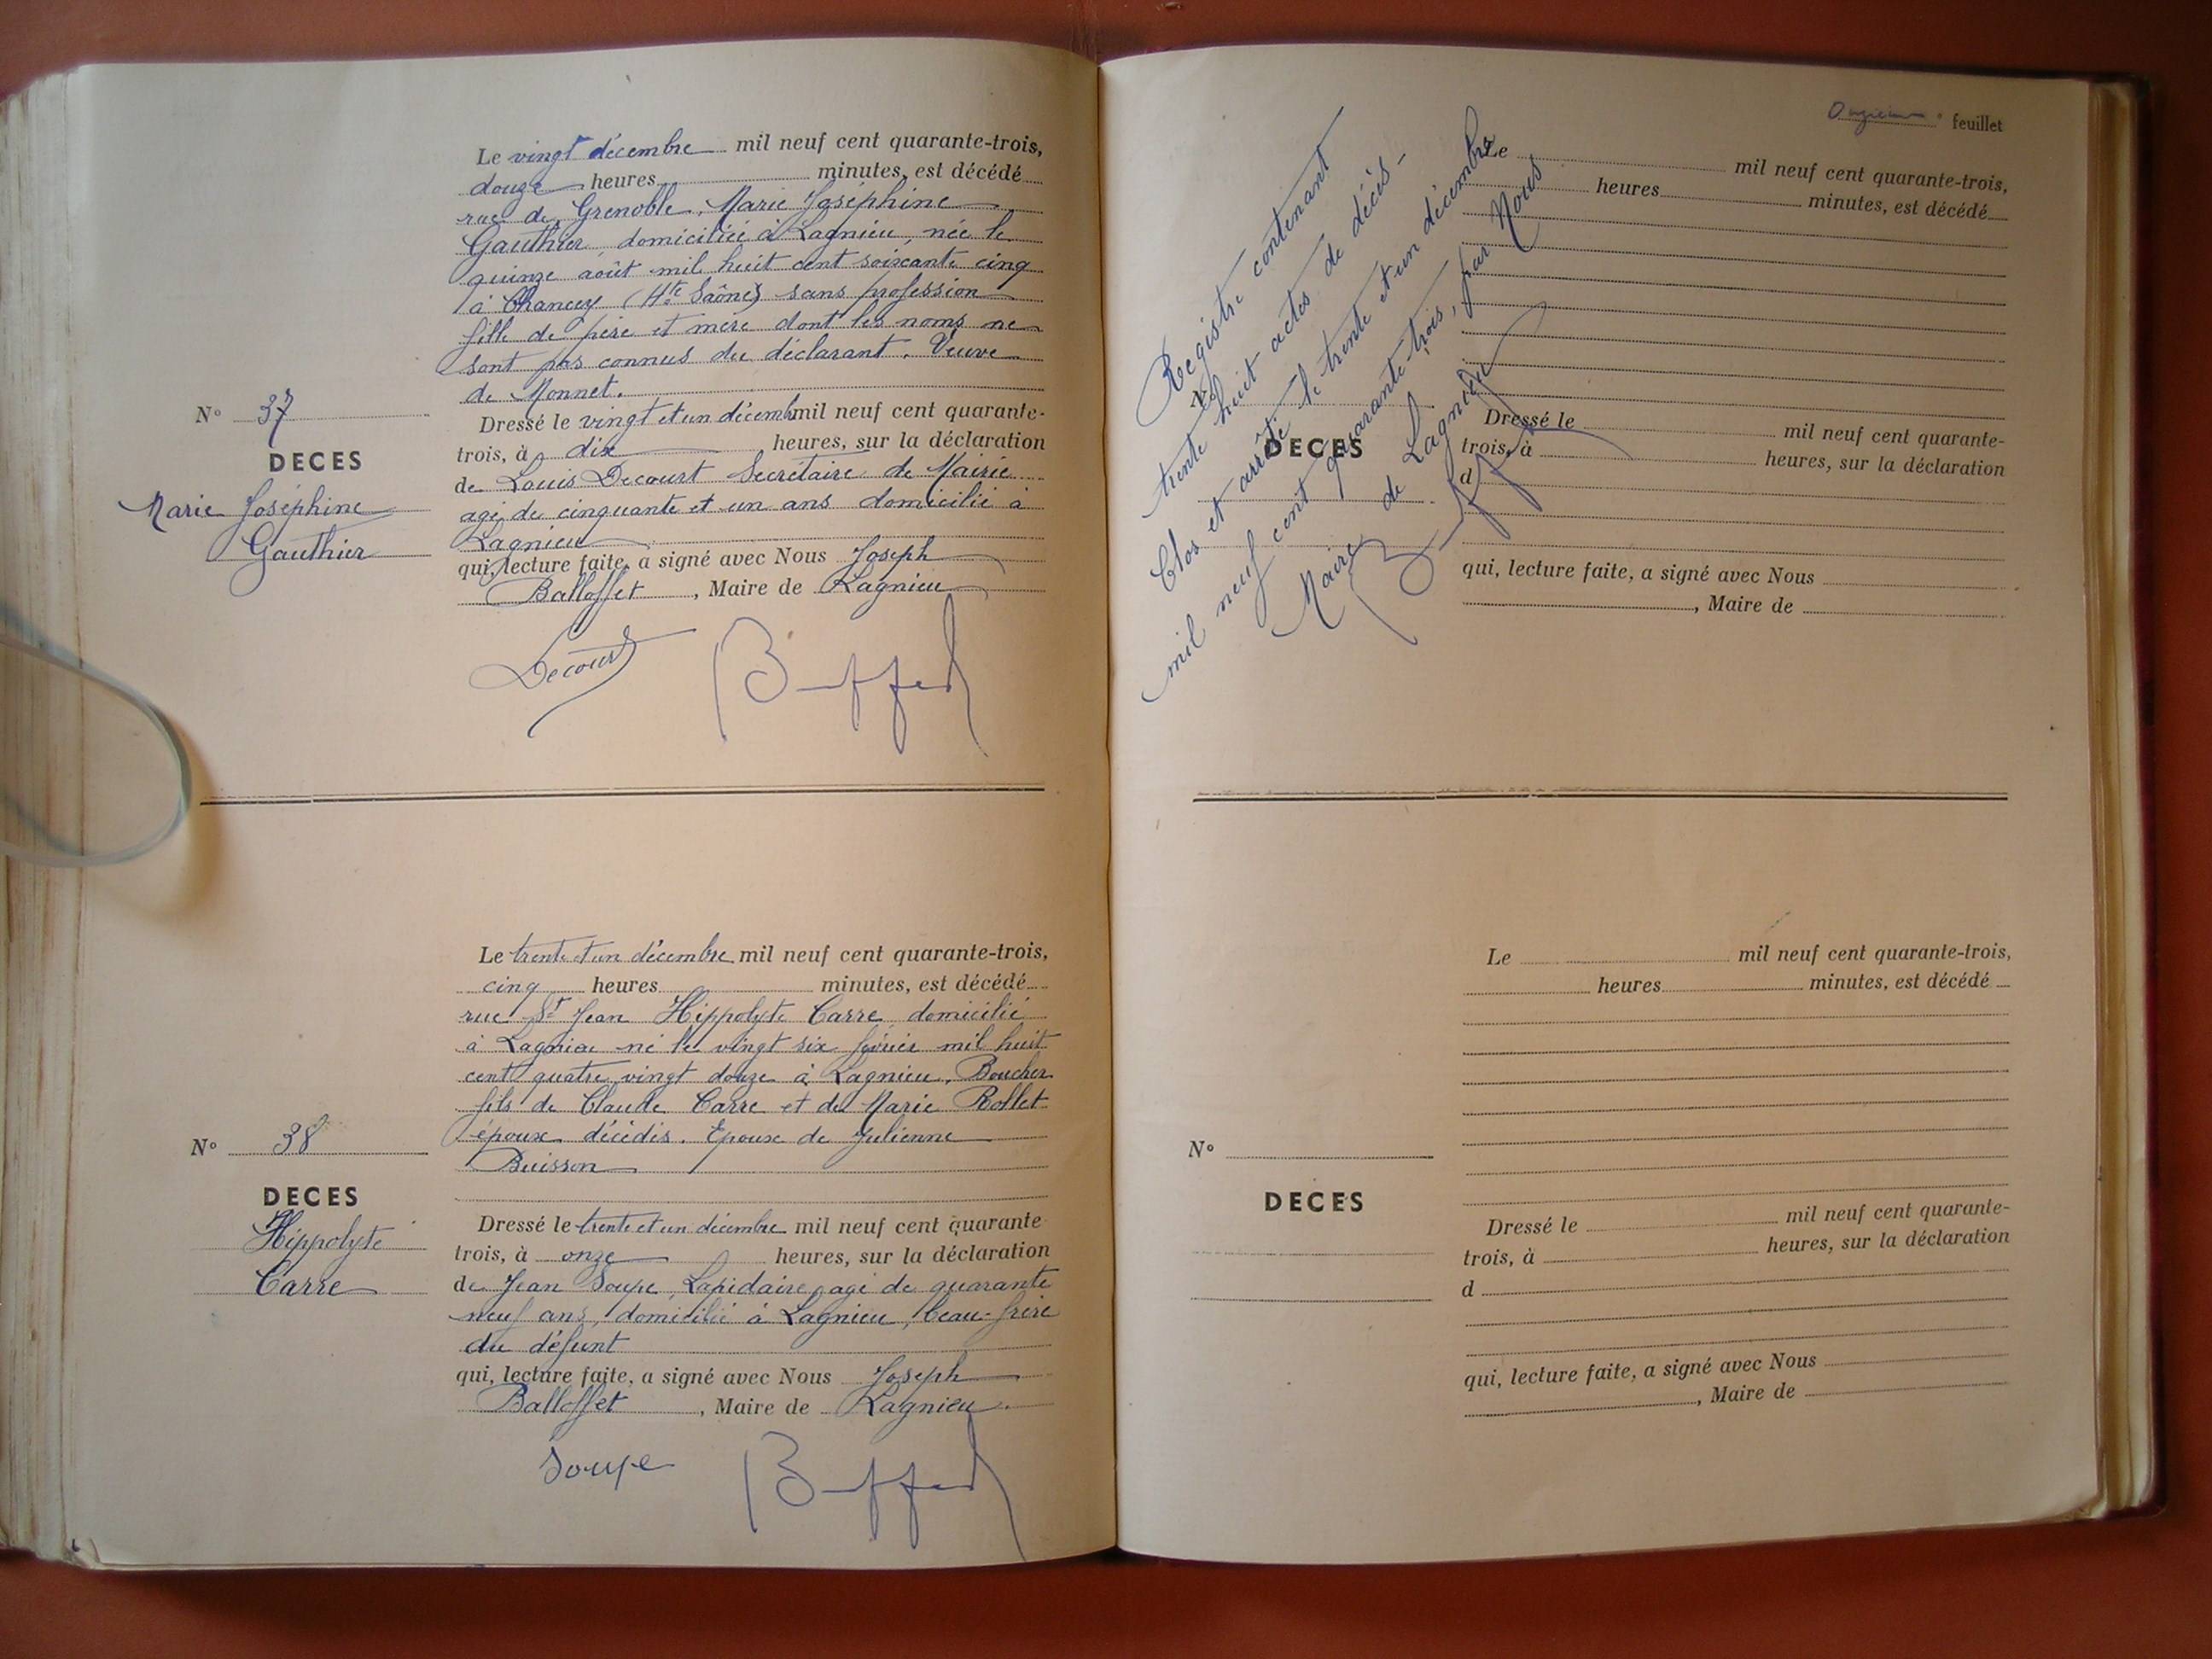 Le vingt décembre mil neuf cent quarante-trois,
douze heures minutes, est décédé
rue de Grenoble, Marie Joséphine
Gauthier domiciliée à Lagnieu, née le
quinze août mil huit cent soixante cinq
à Chancey (Hte Saône) sans profession
fille de père et mère dont les noms ne
sont pas connus du déclarant. Veuve
de Monnet.
N° 37
DECES
Marie Joséphine
Gauthier
Dressé le vingt et un décemb mil neuf cent quarante-
trois, à dix heures, sur la déclaration
de Louis Decourt Secrétaire de Mairie
agé de cinquante et un ans domicilié à
Lagnieu
qui, lecture faite, a signé avec Nous Joseph
Balloffet, Maire de Lagnieu
Decourt
Le trente et un décembre mil neuf cent quarante-trois,
cinq heures minutes, est décédé
rue St Jean Hippolyte Carre domicilié
à Lagnieu né le vingt six février mil huit
cent quatre vingt douze à Lagnieu, Boucher
fils de Claude Carre et de Marie Rollet
époux décédés. Epoux de Julienne
Buisson
N° 38
DECES
Hippolyte
Carre
Dressé le trente et un décembre mil neuf cent quarante
trois, à onze heures, sur la déclaration
de Jean Soupe, Lapidaire agé de quarante
neuf ans, domicilié à Lagnieu, beau-frère
du défunt
qui, lecture faite, a signé avec Nous Joseph
Balloffet, Maire de Lagnieu.
Soupe
feuillet
Registre contenant
trente huit actes de décès-
Clos et arrêté le trente et un décembre
mil neuf cent quarante trois, par Nous
Maire de Lagnieu
Le mil neuf cent quarante-trois,
heures minutes, est décédé
N°
DECES
Dressé le mil neuf cent quarante-
trois, à heures, sur la déclaration
d
qui, lecture faite, a signé avec Nous
, Maire de
Le mil neuf cent quarante-trois,
heures minutes, est décédé
N°
DECES
Dressé le mil neuf cent quarante-
trois, à heures, sur la déclaration
d
qui, lecture faite, a signé avec Nous
, Maire de